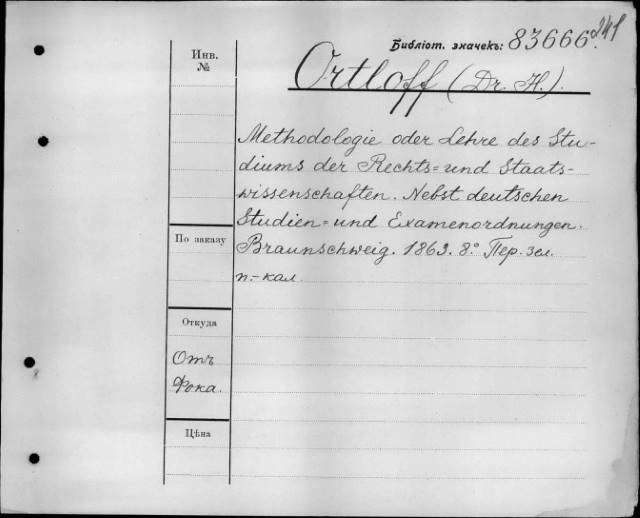 241
Библіот. значекъ: 83666.
Инв.
№
Ortloff (Dr. H.).
Methodologie oder Lehre des Stu-
diums der Rechts= und Staats-
wissenschaften. Nebst deutschen
Studien= und Examenordnungen.
Braunschweig. 1863. 8.° Пер. зел.
п.-кал.
По заказу
Откуда
Отъ
Фока.
Цѣна